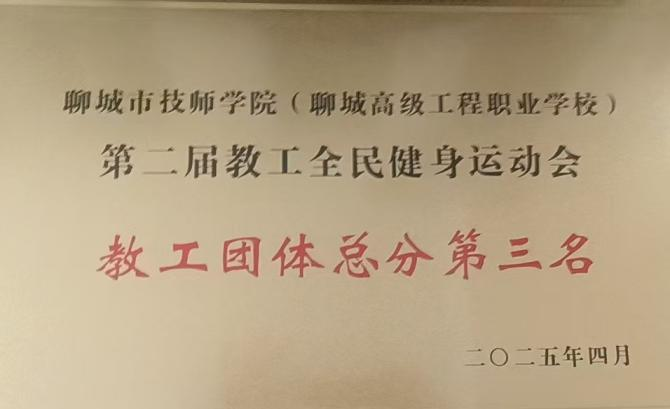 聊城市技师学院（聊城高级工程职业学校）
第二届教工全民健身运动会
教工团体总分第三名
二〇二五年四月